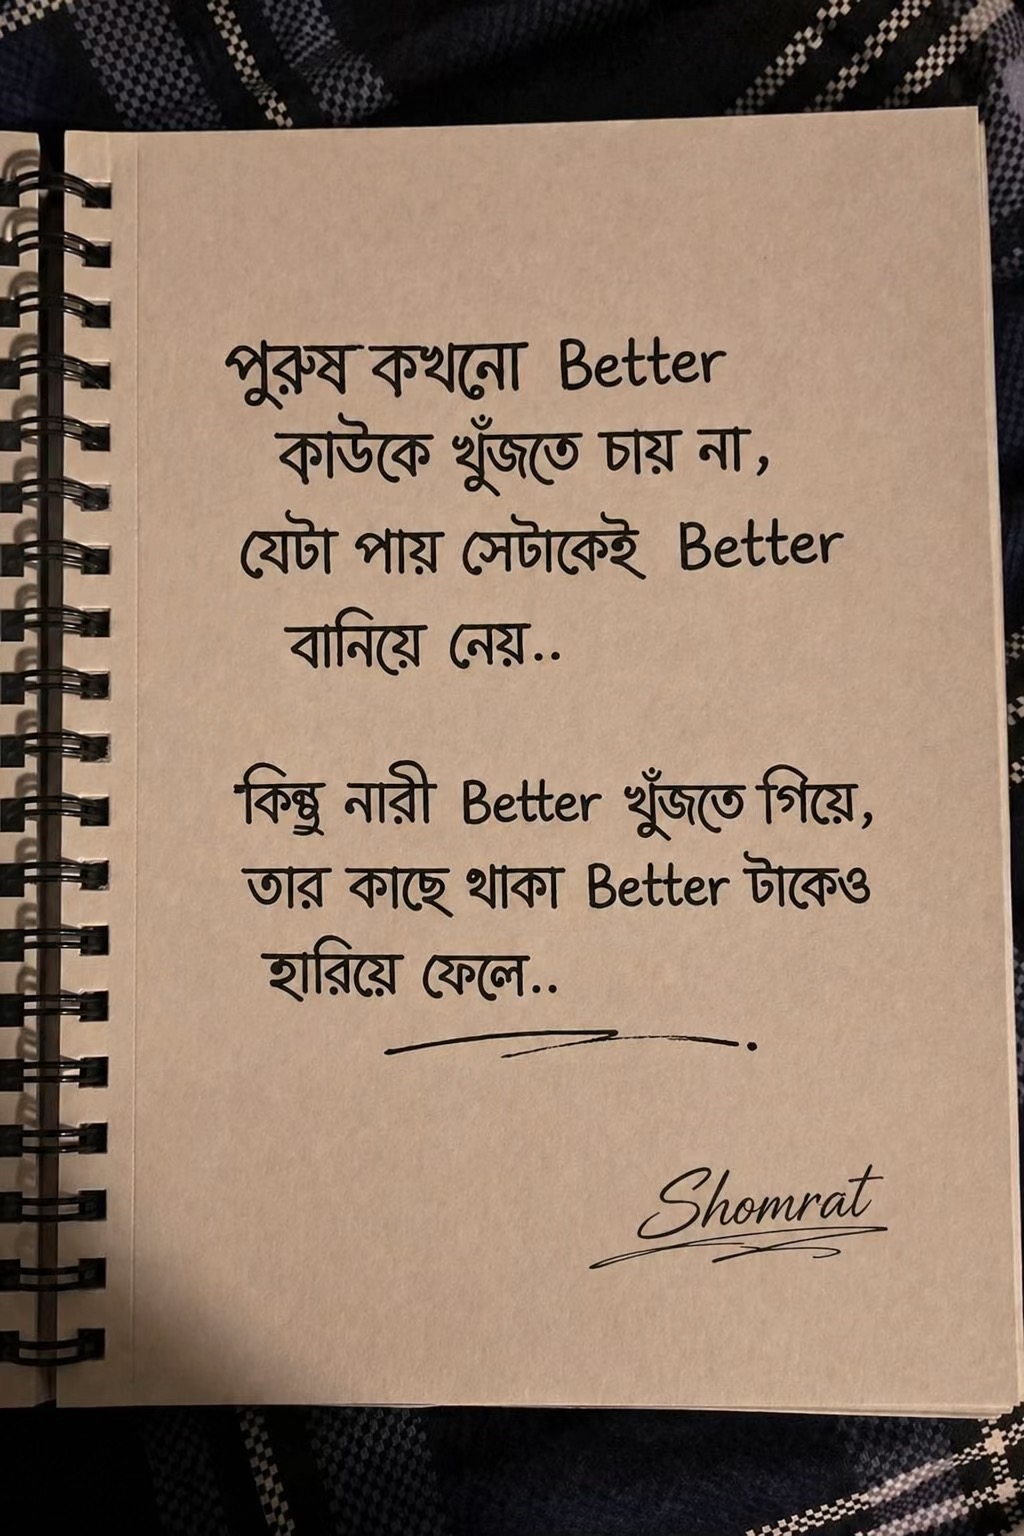 পুরুষ কখনো Better
কাউকে খুঁজতে চায় না,
যেটা পায় সেটাকেই Better
বানিয়ে নেয়..
কিন্তু নারী Better খুঁজতে গিয়ে,
তার কাছে থাকা Better টাকেও
হারিয়ে ফেলে..
Shomrat